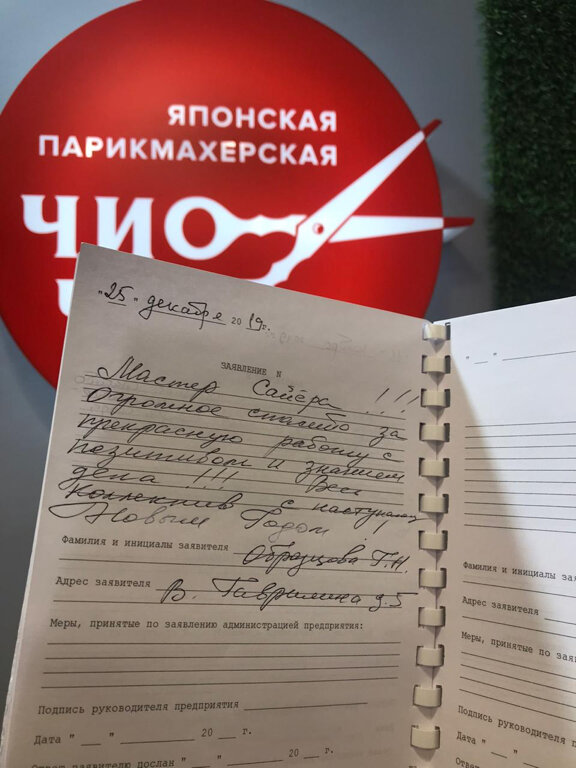 ЯПОНСКАЯ
ПАРИКМАХЕРСКАЯ
ЧИО
"25" декабря 2019г.
ЗАЯВЛЕНИЕ N
Мастер Сайёра !!!
Огромное спасибо за
прекрасную работу с
позитивом и знанием
дела !!! Весь
коллектив с наступающ
Новым Годом!
Фамилия и инициалы заявителя Образцова Г.Н.
Адрес заявителя В. Гаврилина д.5
Меры, принятые по заявлению администрацией предприятия:
Подпись руководителя предприятия
Дата "___" ________ 20 ___ г.
Ответ заявителю послан "___" ________ 20 ___ г.
"___"
Фамилия и инициалы зая
Адрес заявителя
Меры, принятые по зая
Подпись руководителя
Дата "___"